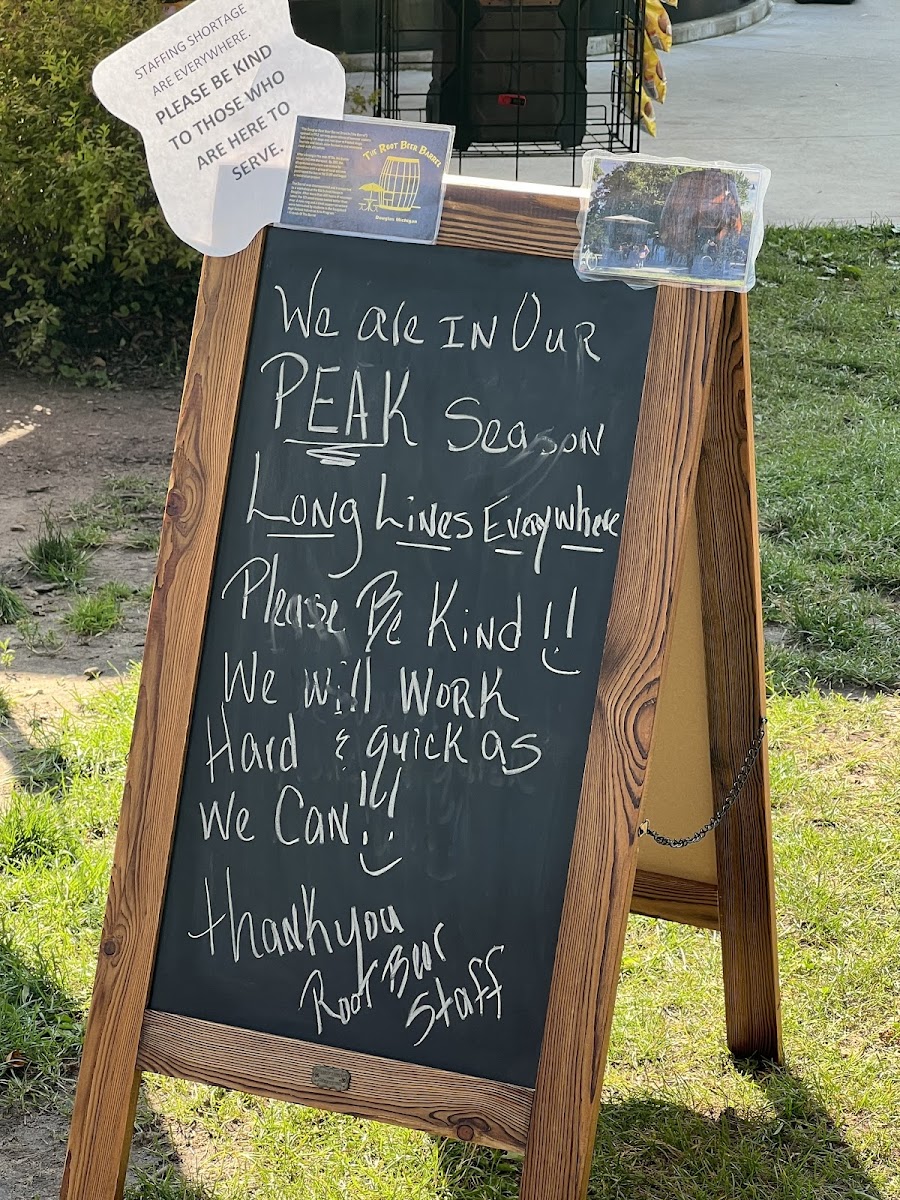 STAFFING SHORTAGE
ARE EVERYWHERE.
PLEASE BE KIND
TO THOSE WHO
ARE HERE TO
SERVE.
THE ROOT BEER BARREL
Douglas, Michigan
We are IN Our
PEAK Season
Long Lines Everywhere
Please Be Kind !!
We will Work
Hard & quick as
We Can!!!
thank you
Root Beer
Staff